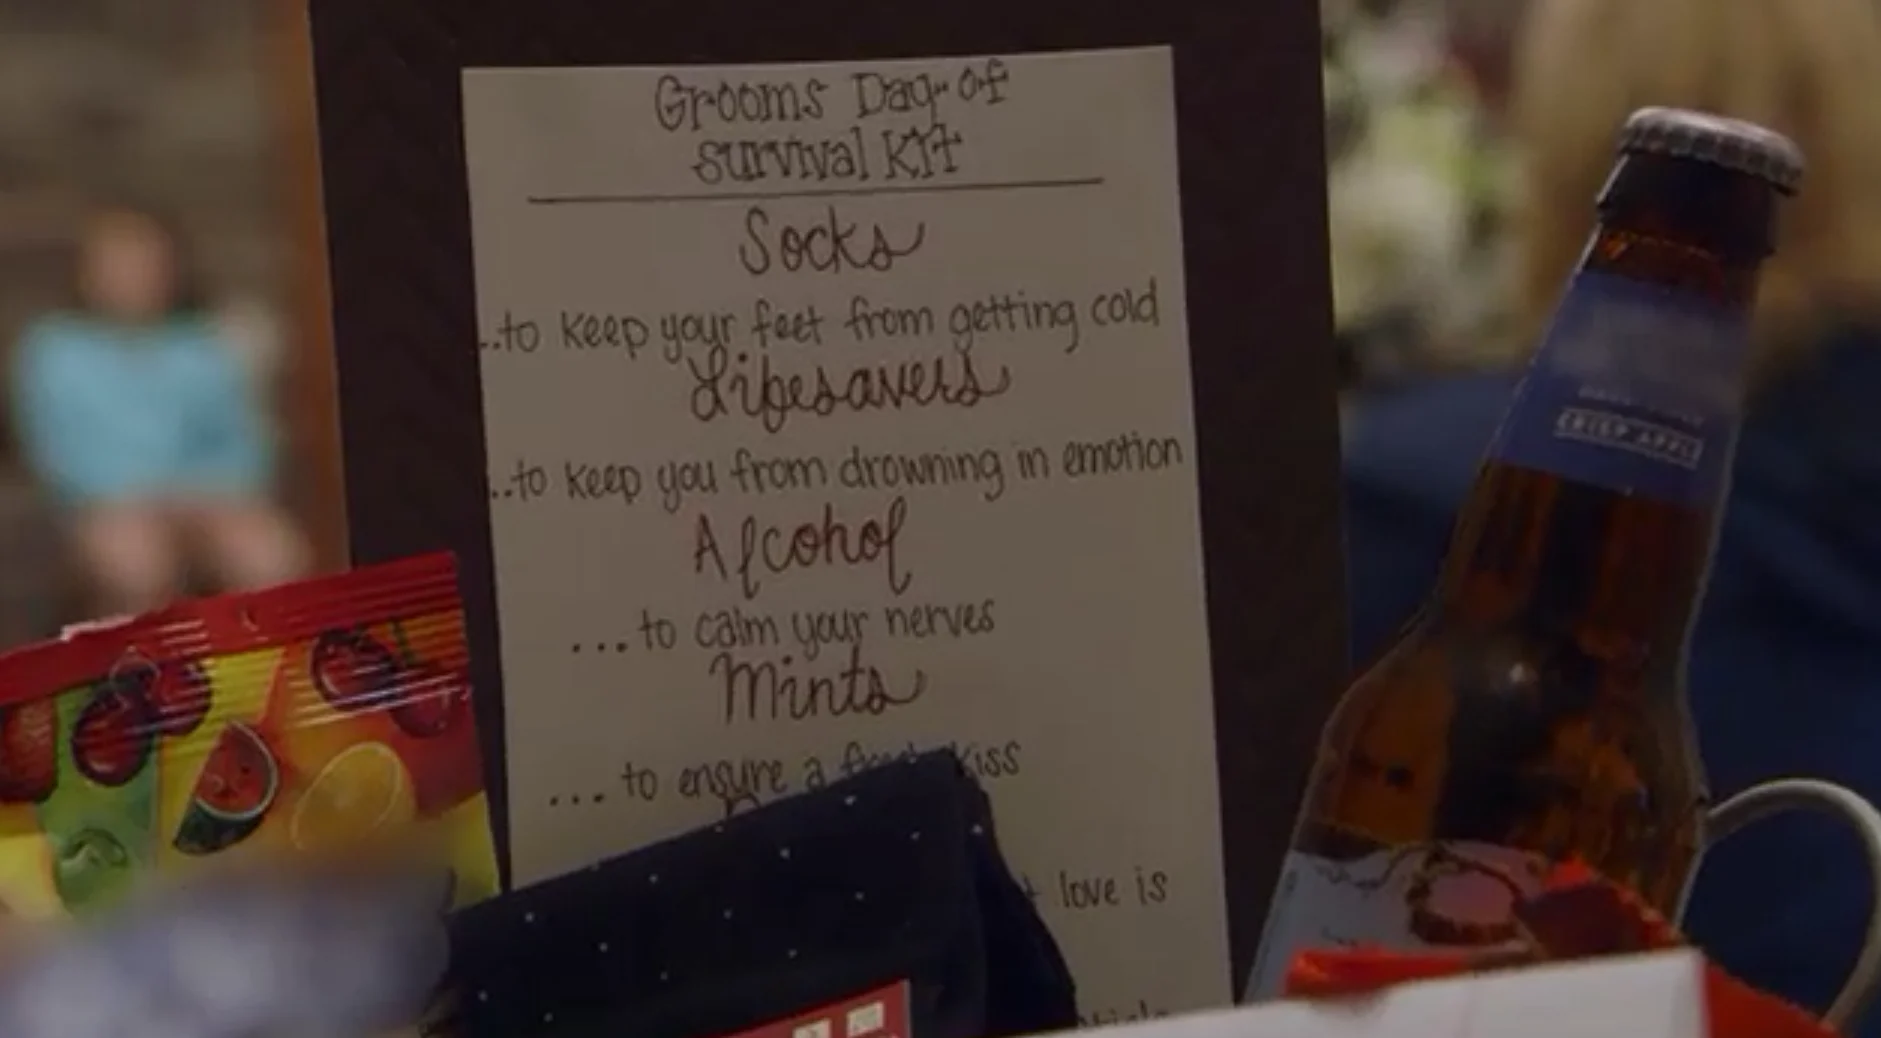 Grooms Day-of
Survival Kit
Socks
...to keep your feet from getting cold
Lifesavers
...to keep you from drowning in emotion
Alcohol
...to calm your nerves
Mints
...to ensure a fresh kiss
love is
CRISP APPLE